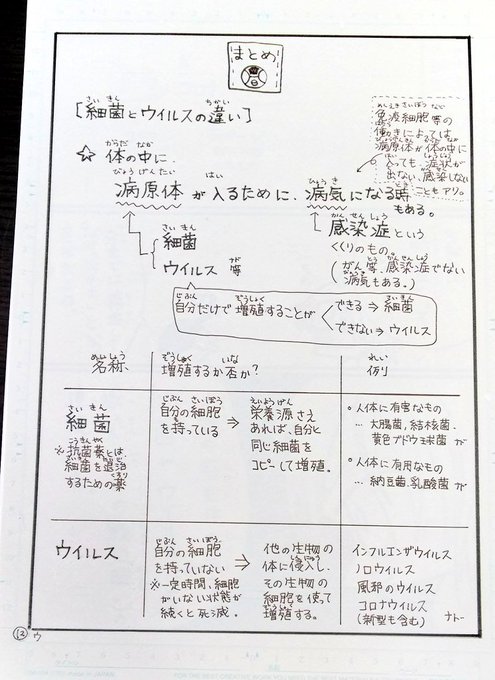 まとめ
[細菌とウイルスの違い]
免疫細胞等の
働きによっては
病原体が体の中に
入っても、症状が
出ない、感染しない
こともアリ。
☆ 体の中に、
病原体が入るために、病気になる時
もある。
細菌
ウイルス 等
感染症という
くくりのもの。
(がん等、感染症でない
病気もある。)
自分だけで増殖することが
できる⇒細菌
できない⇒ウイルス
名称
増殖するか否か?
例
細菌
※抗菌薬とは、
細菌を退治
するための薬
自分の細胞
を持っている
⇒
栄養源さえ
あれば、自分と
同じ細菌を
コピーして増殖。
○人体に有害なもの
… 大腸菌、結核菌、
黄色ブドウ球菌 が
○人体に有用なもの
… 納豆菌、乳酸菌 が
ウイルス
自分の細胞
を持っていない
※一定時間、細胞
がいない状態が
続くと死滅。
⇒
他の生物の
体に侵入し、
その生物の
細胞を使って
増殖する。
インフルエンザウイルス
ノロウイルス
風邪のウイルス
コロナウイルス
(新型も含む) ナド
⑫ウ